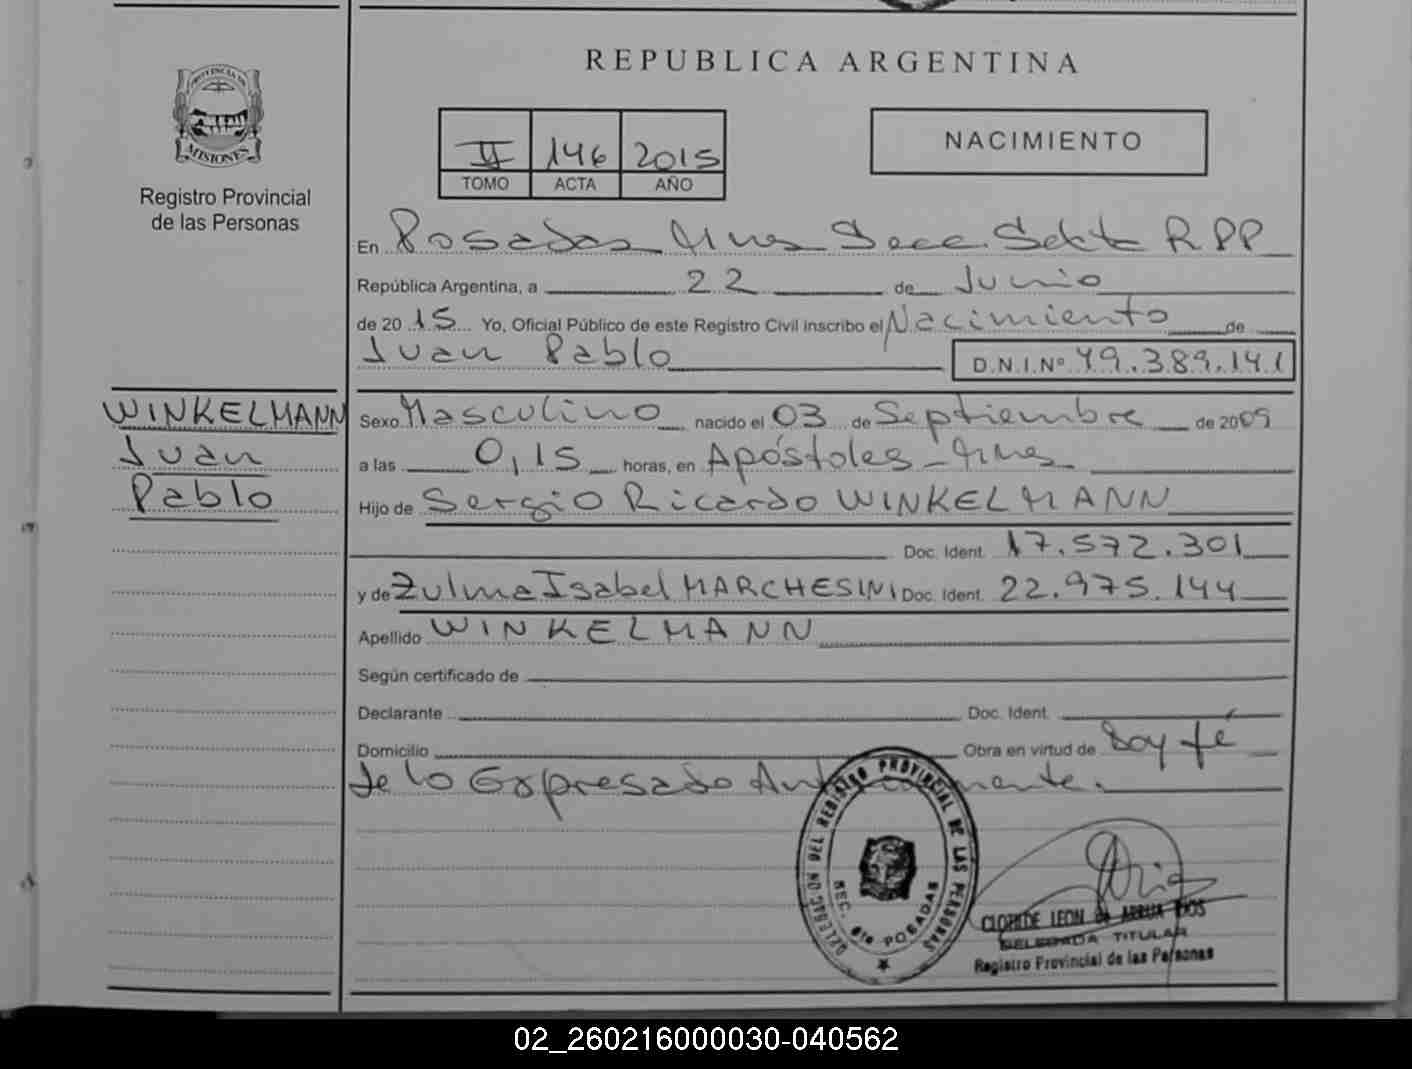 REPUBLICA ARGENTINA
PROVINCIA DE
MISIONES
Registro Provincial
de las Personas
II 146 2015
TOMO ACTA AÑO
NACIMIENTO
En Posadas Mnes Secc. Sexta RPP
República Argentina, a 22 de Junio
de 2015 Yo, Oficial Público de este Registro Civil inscribo el Nacimiento de
Juan Pablo D.N.I.Nº 49.389.141
WINKELMANN
Juan
Pablo
Sexo Masculino nacido el 03 de Septiembre de 2009
a las 0,15 horas, en Apóstoles - Mnes
Hijo de Sergio Ricardo WINKELMANN
Doc. Ident. 17.572.301
y de Zulma Isabel MARCHESINI Doc. Ident. 22.975.144
Apellido WINKELMANN
Según certificado de
Declarante Doc. Ident.
Domicilio Obra en virtud de Doy fé
de lo Expresado
DELEGACION DEL REGISTRO PROVINCIAL DE LAS PERSONAS
SEC. 6ta POSADAS
CLOTILDE LEON DE ARRUA RIOS
DELEGADA TITULAR
Registro Provincial de las Personas
02_260216000030-040562